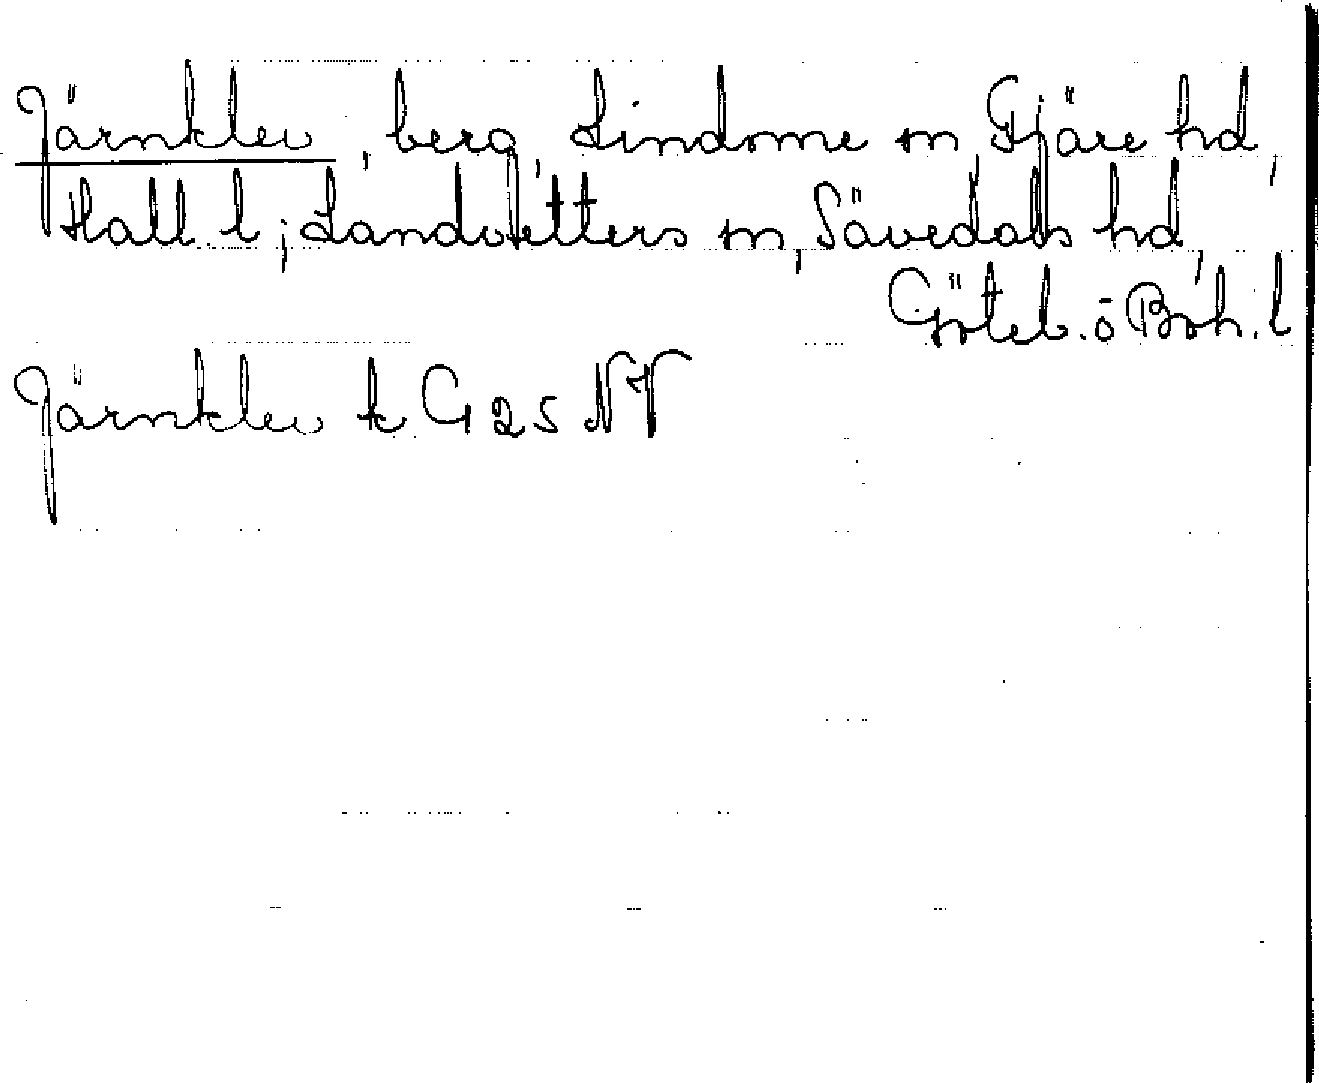 Järnklev, berg, Lindome sn, Fjäre hd,
Hall l; Landvetters sn, Sävedals hd,
Göteb. o Boh. l
Järnklev k G 25 NV